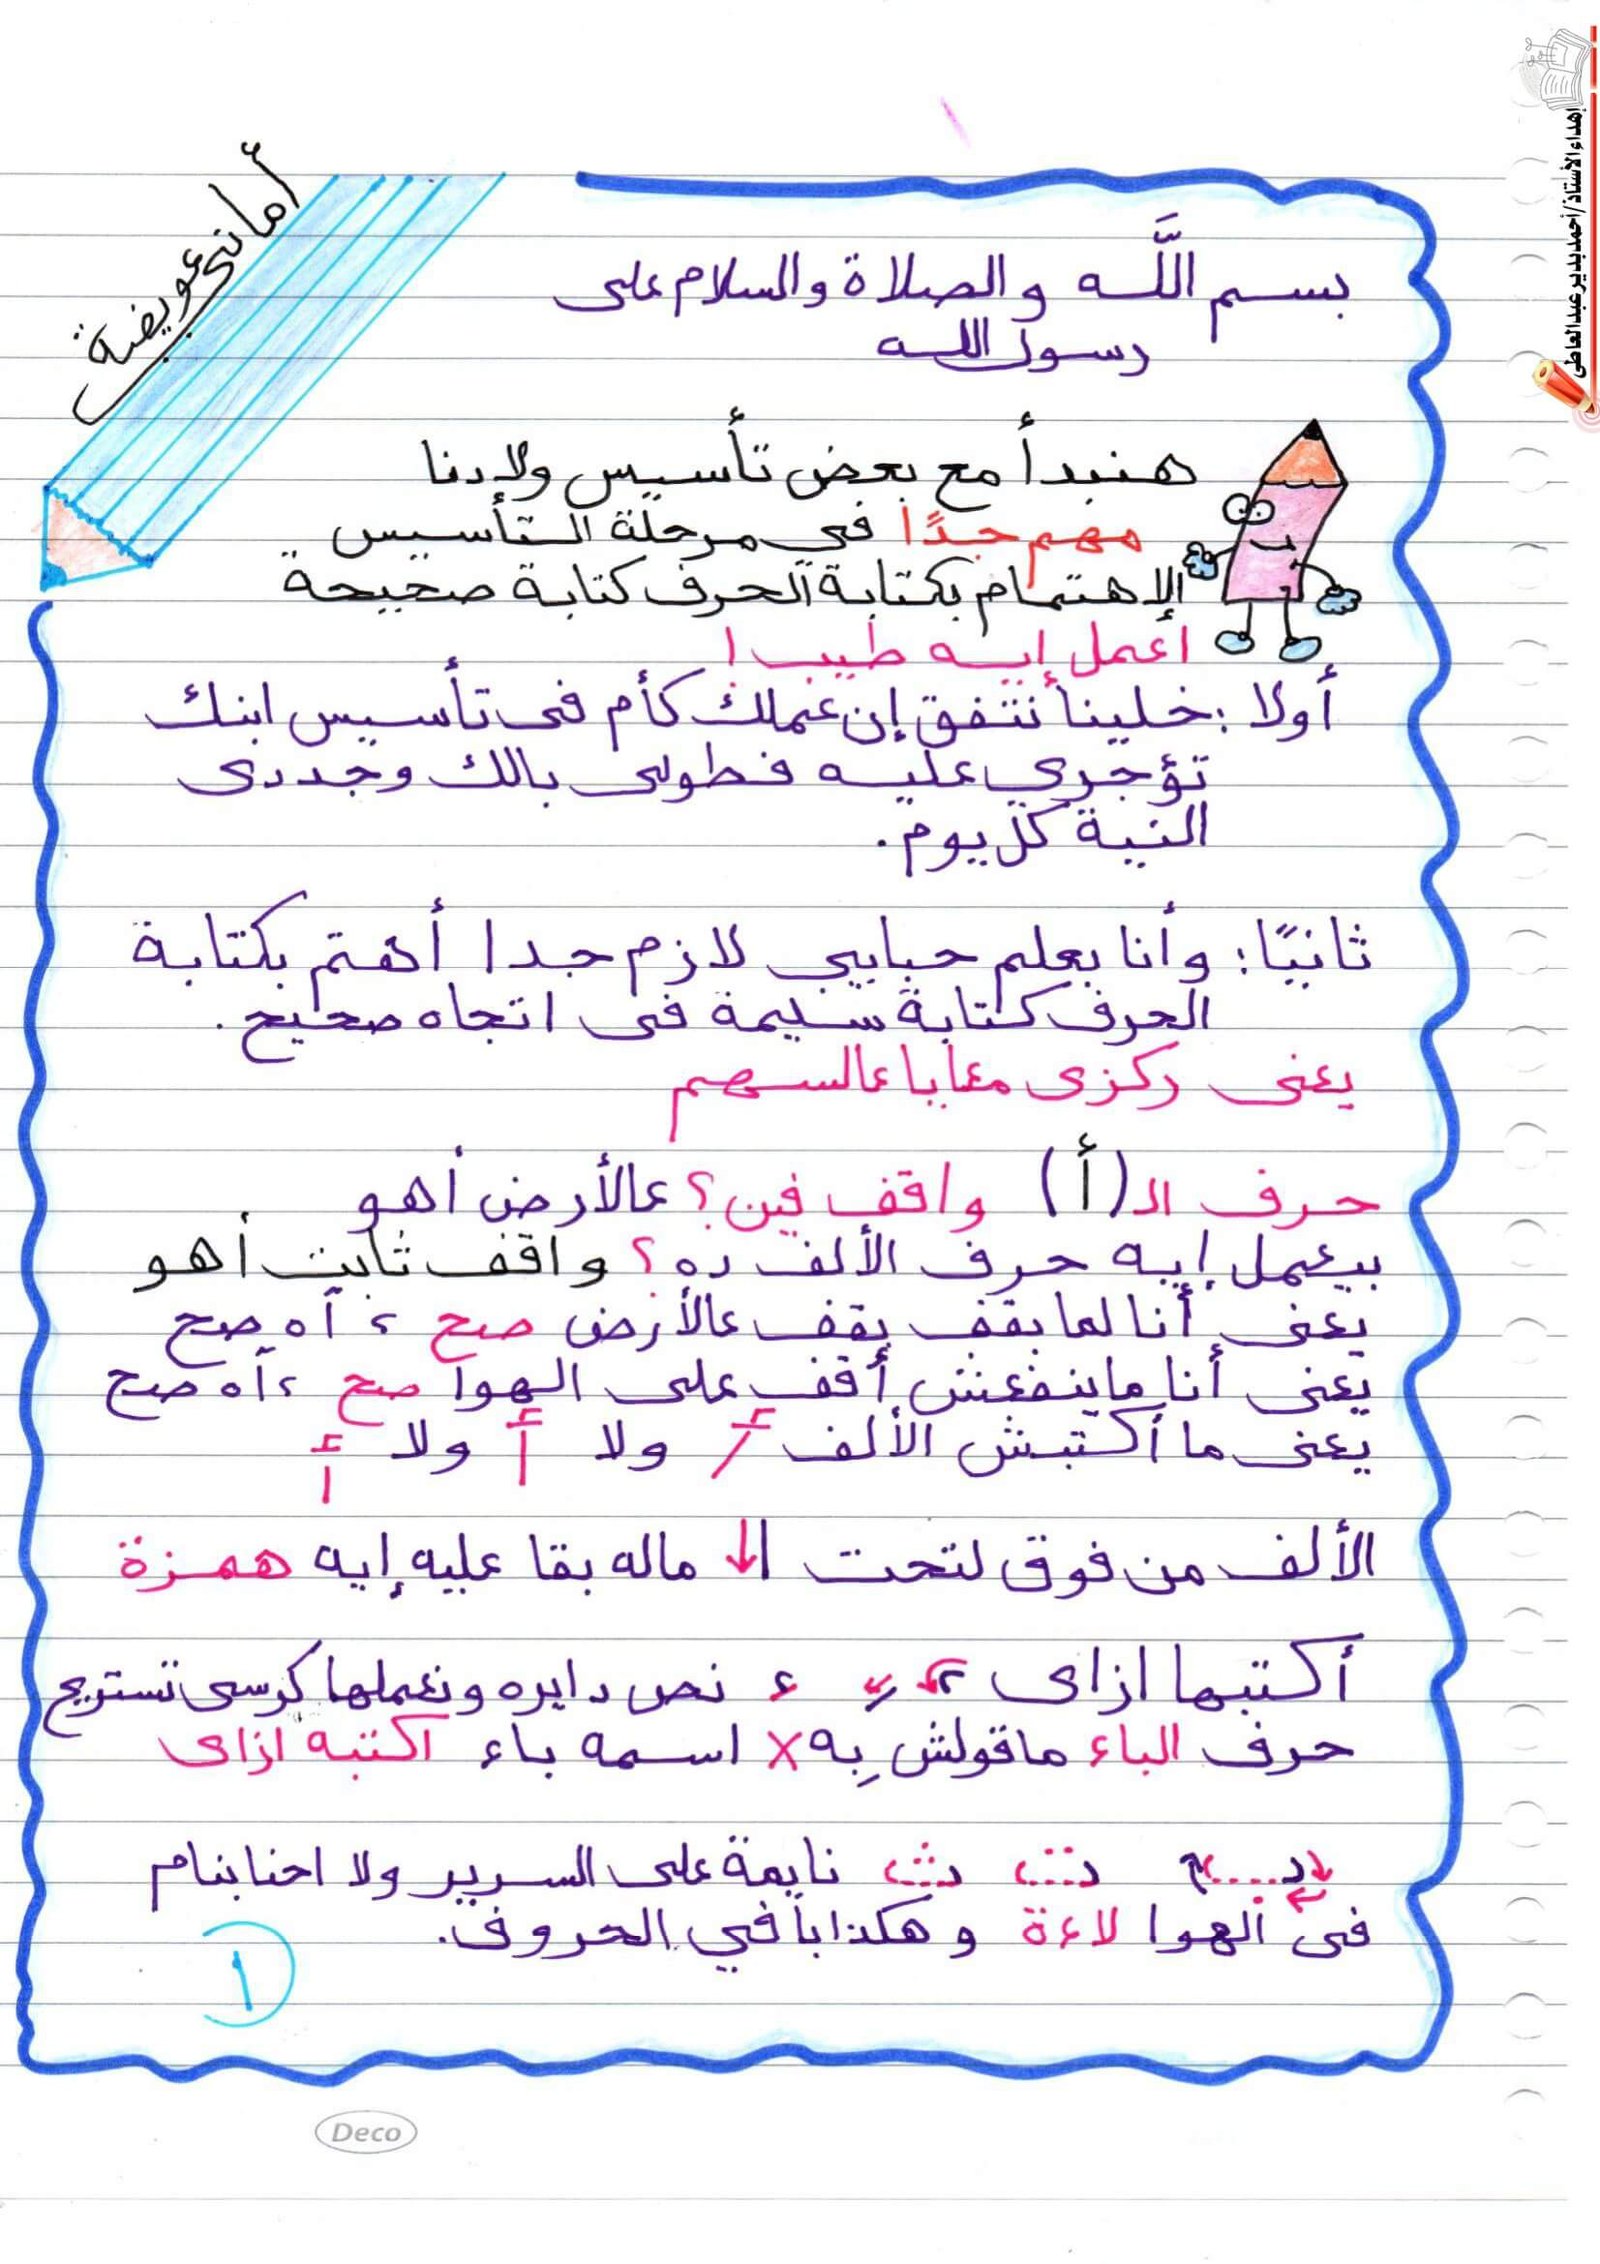 إهداء الأستاذ/أحمد بدير عبدالعاطى
أمانى عويضة
بسم اللَّه والصلاة والسلام على
رسول الله
هنبدأ مع بعض تأسيس ولادنا
مهم جدًا في مرحلة التأسيس
الإهتمام بكتابة الحرف كتابة صحيحة
اعمل إيه طيب !
أولا : خلينا نتفق إن عملك كأم فى تأسيس ابنك
تؤجرى عليه فطولى بالك وجددى
النية كل يوم .
ثانيًا : وأنا بعلم حبايبي لازم جدا أهتم بكتابة
الحرف كتابة سليمة فى اتجاه صحيح .
يعنى ركزى معايا عالسهم
حرف الـ (أ) واقف فين ؟ عالأرض أهو
بيعمل إيه حرف الألف ده ؟ واقف ثابت أهو
يعنى أنا لما بقف بقف عالأرض صح ، آه صح
يعنى أنا ماينفعش أقف على الهوا صح ، آه صح
يعنى ما أكتبش الألف أ ولا أ ولا أ
الألف من فوق لتحت ا↓ ماله بقا عليه إيه همزة
أكتبها ازاى ء نص دايره ونعملها كرسى تستريح
حرف الباء ماقولش بِه x اسمه باء اكتبه ازاى
ب ت ث نايمة على السرير ولا احنا بنام
فى الهوا لاءة وهكذا باقي الحروف.
١
Deco